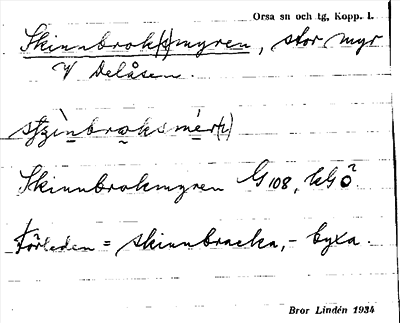 Orsa sn och tg, Kopp. l.
Skinnbrok(s)myren, stor myr
V Delåsen.
Skinnbrokmyren G 108,
Förleden = skinnbracka, - byxa.
Bror Lindén 1934